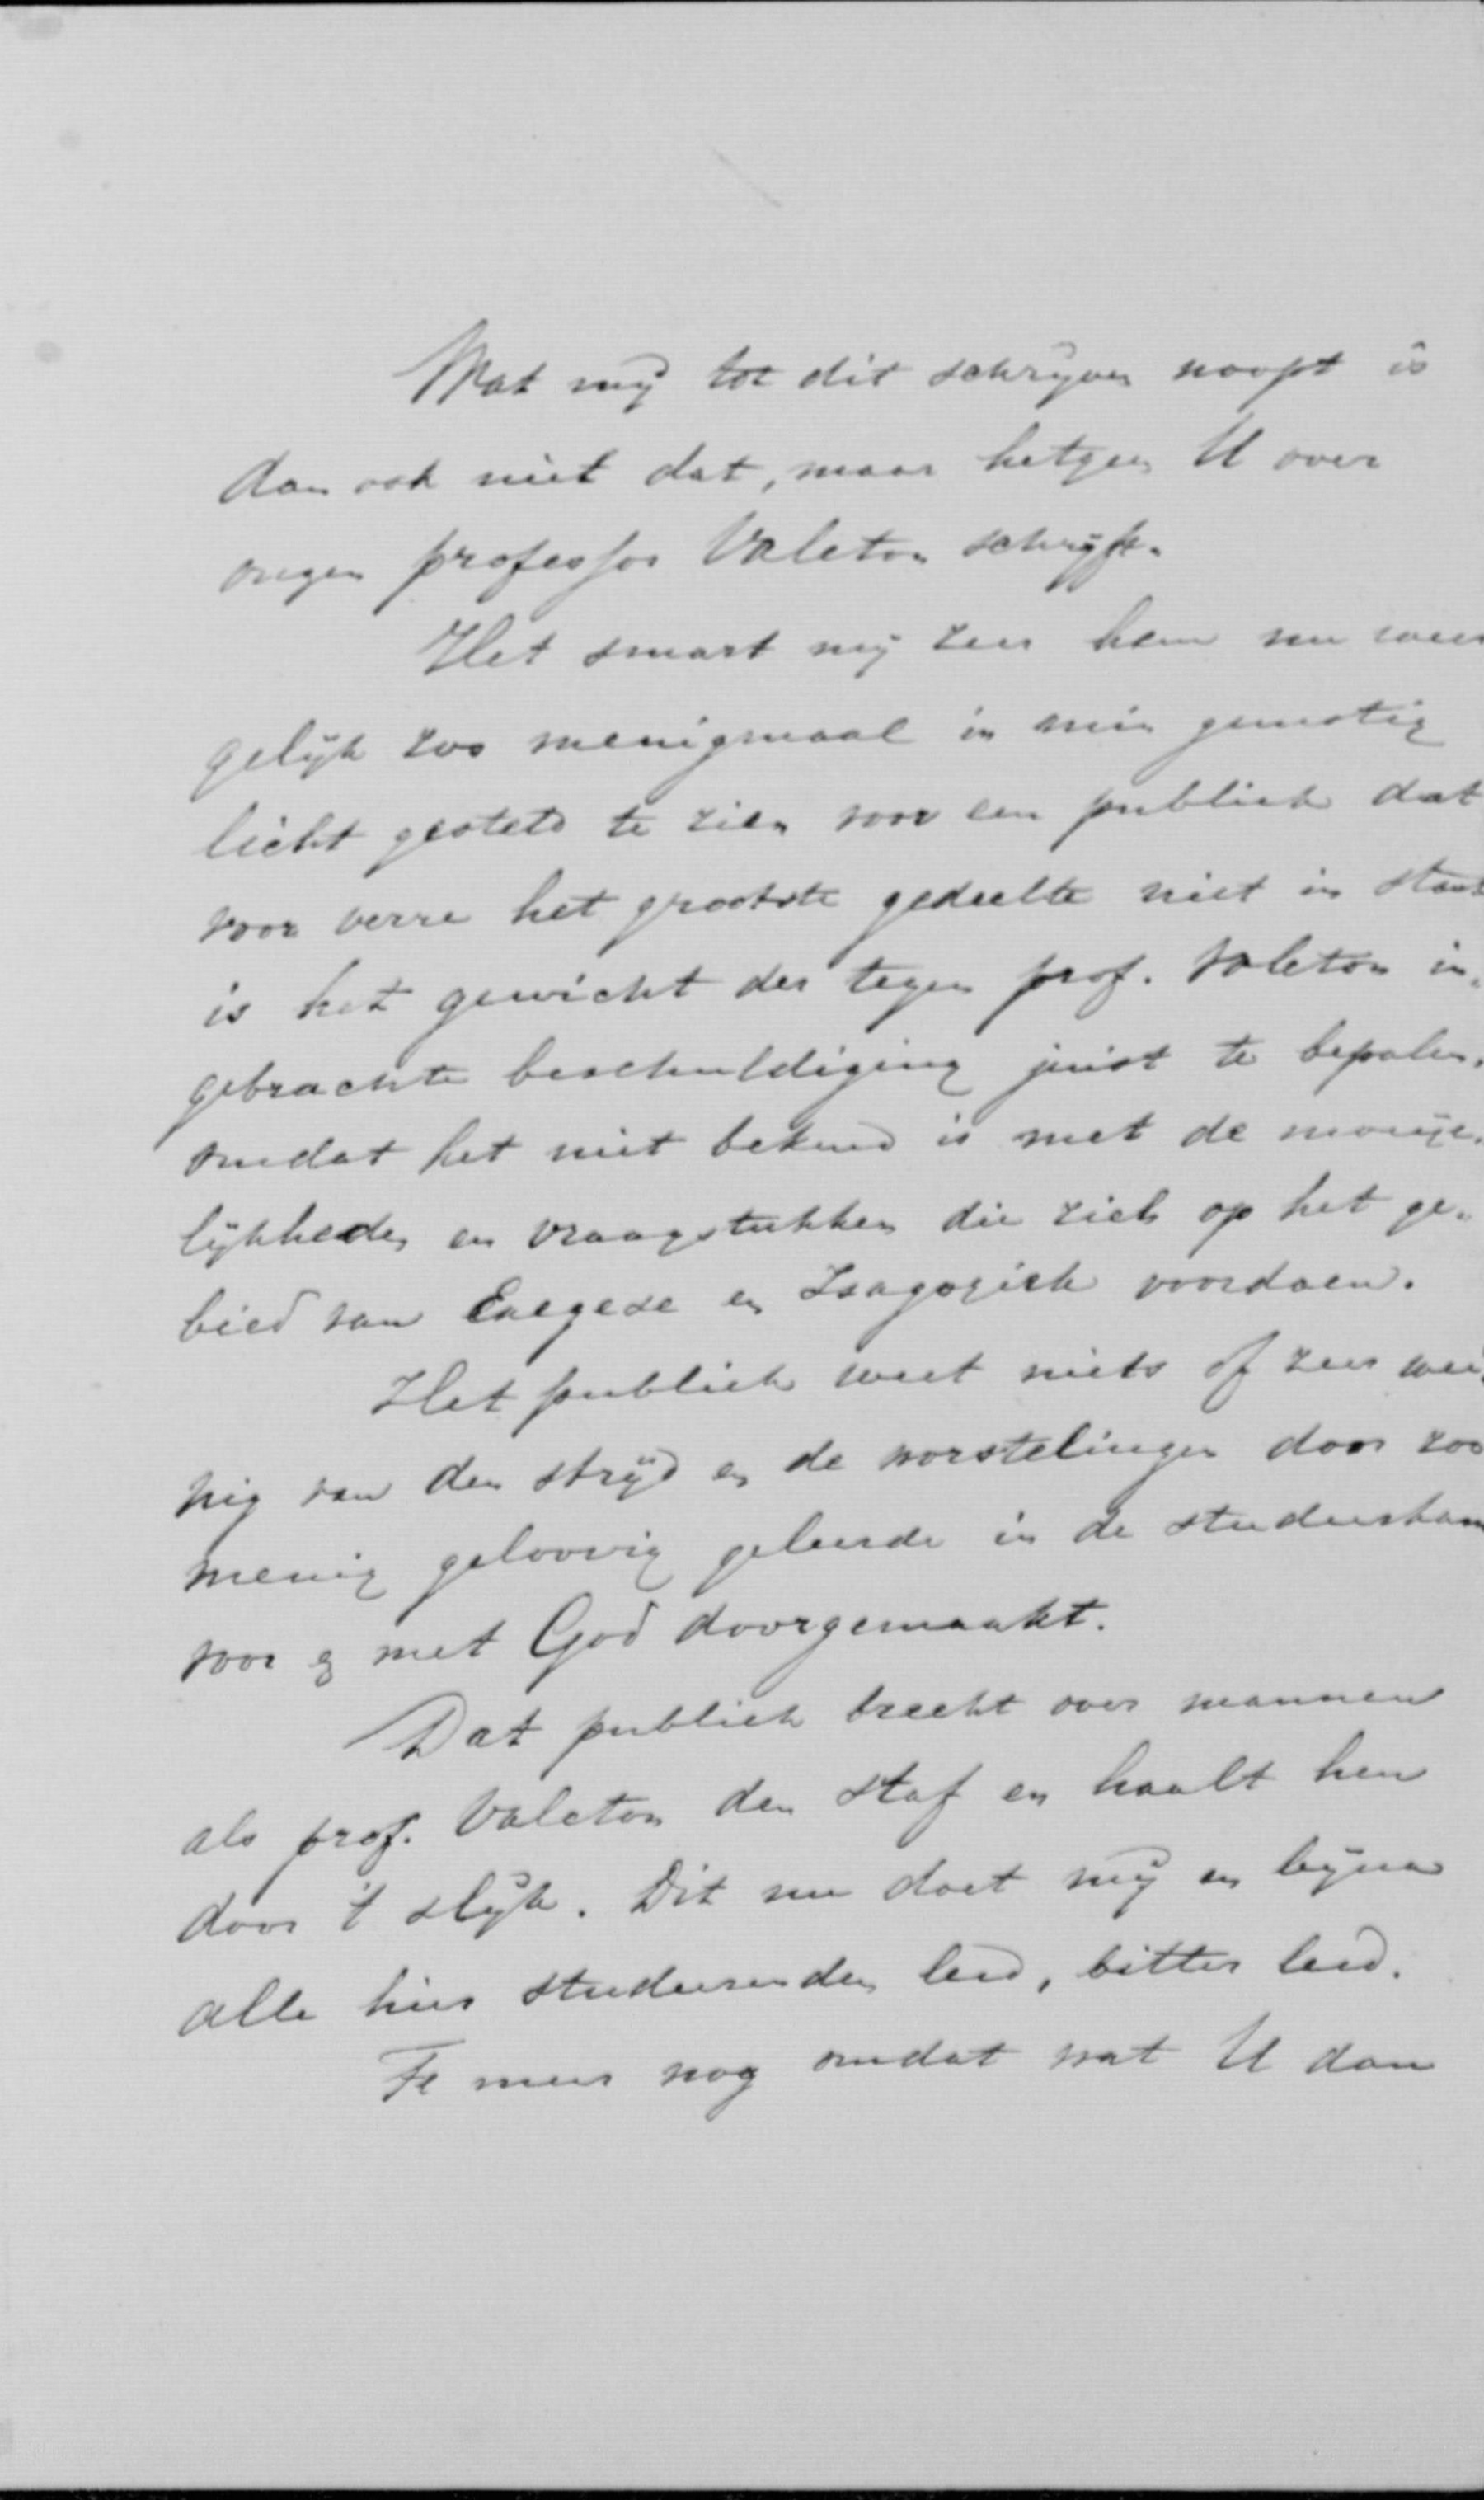 Wat mij tot dit schrijven noopt is
dan ook niet dat, maar hetgeen U over
onzen professor Valeton schrijft.
Het smart mij zeer hem nu weer
gelijk zoo menigmaal in min gunstig
licht gesteld te zien voor een publiek dat
voor verre het grootste gedeelte niet in staat
is het gewicht der tegen prof. Valeton in-
gebrachte beschuldiging juist te bepalen,
omdat het niet bekend is met de moeije-
lijkheden en vraagstukken die zich op het ge-
bied van Exegese en Isagogiek voordoen.
Het publiek weet niets of zeer wei-
nig van den strijd en de worstelingen door zoo
menig geloovig geleerde in de studeerkam
voor en met God doorgemaakt.
Dat publiek breekt over mannen
als prof. Valeton den staf en haalt hen
door 't slijk. Dit nu doet mij en bijna
alle hier studeerenden leed, bitter leed.
Te meer nog omdat wat U dan